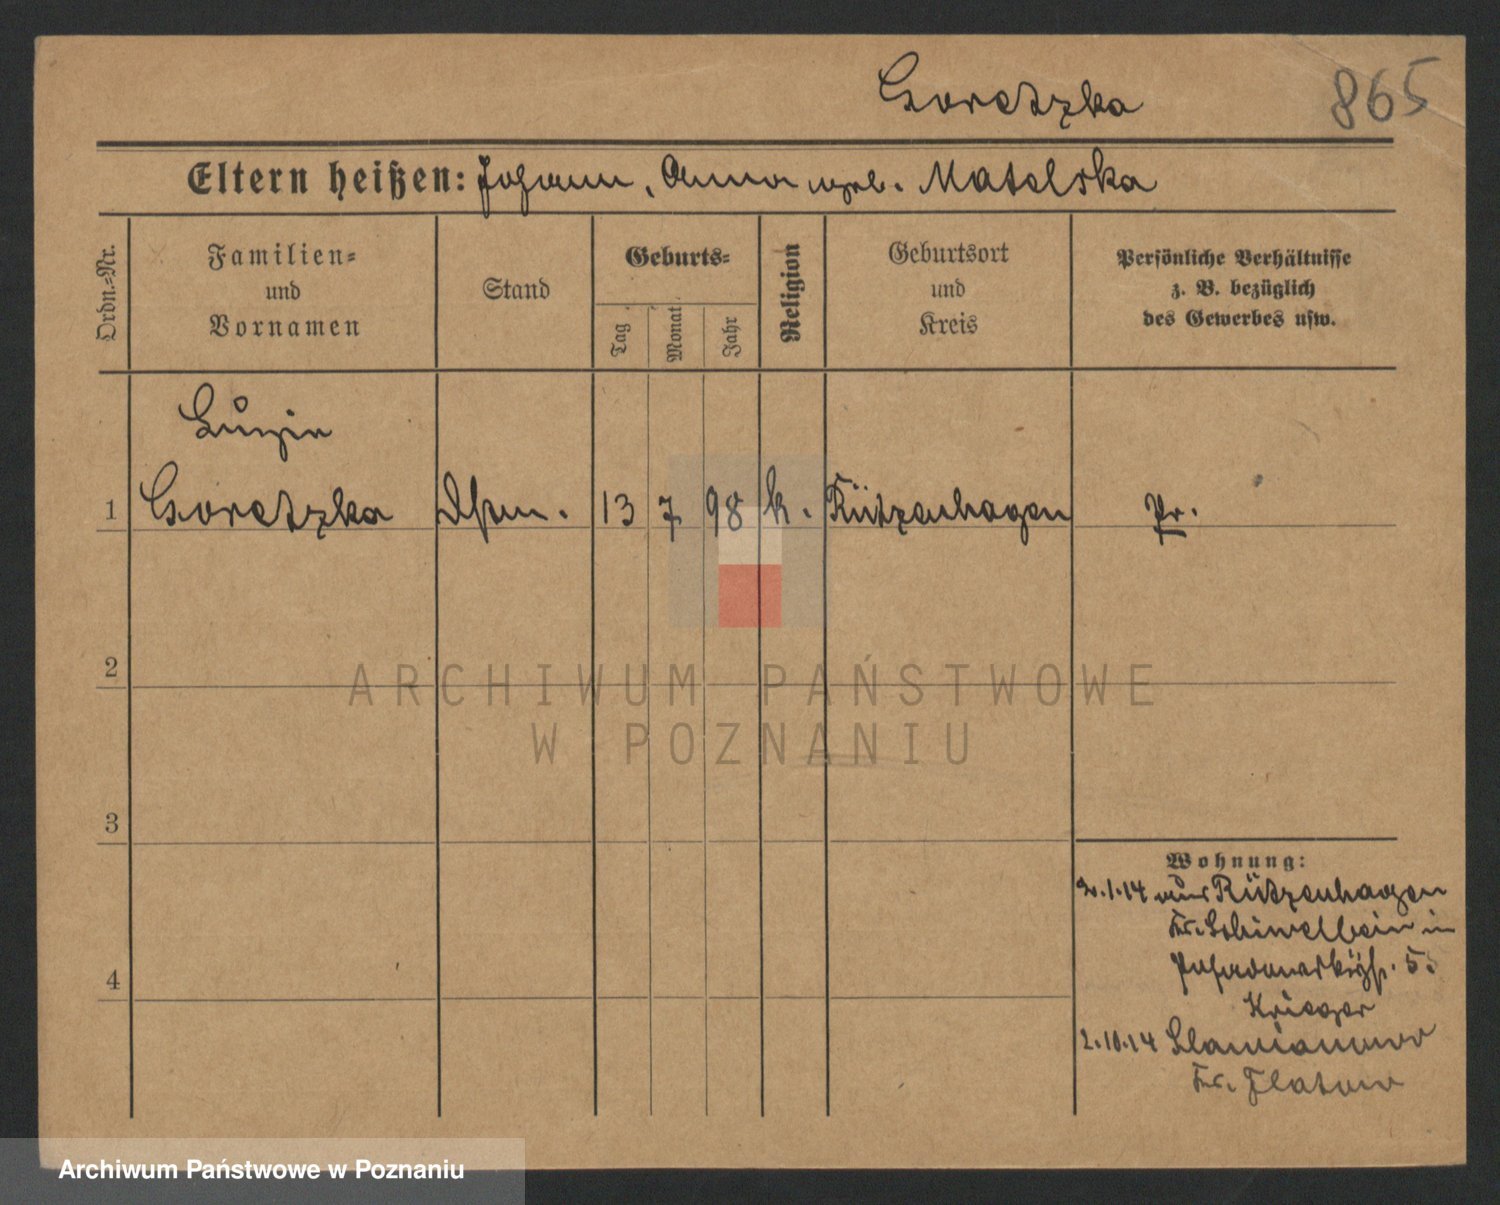 Goretzka 865
Eltern heißen: Johann, Anna geb. Matelska
Ordn.-Nr.
Familien-
und
Vornamen
Stand
Geburts-
Tag
Monat
Jahr
Religion
Geburtsort
und
Kreis
Persönliche Verhältnisse
z. B. bezüglich
des Gewerbes usw.
Luzie
1 Goretzka 13 7 98 k. Rützenhagen Pr.
2
3
4
Wohnung:
2.1.14 aus Rützenhagen
Kr. Schivelbein in
5.
Krieger
2.10.14 Slawianowo
Kr. Flatow
ARCHIWUM PAŃSTWOWE
W POZNANIU
Archiwum Państwowe w Poznaniu